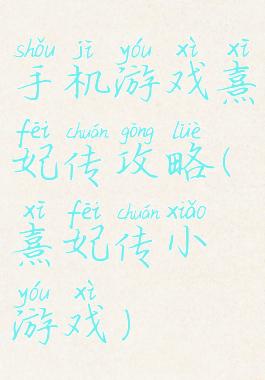 shǒu jī yóu xì xī
手机游戏熹
fēi chuán gōng lüè
妃传攻略(
xī fēi chuán xiǎo
熹妃传小
yóu xì
游戏)